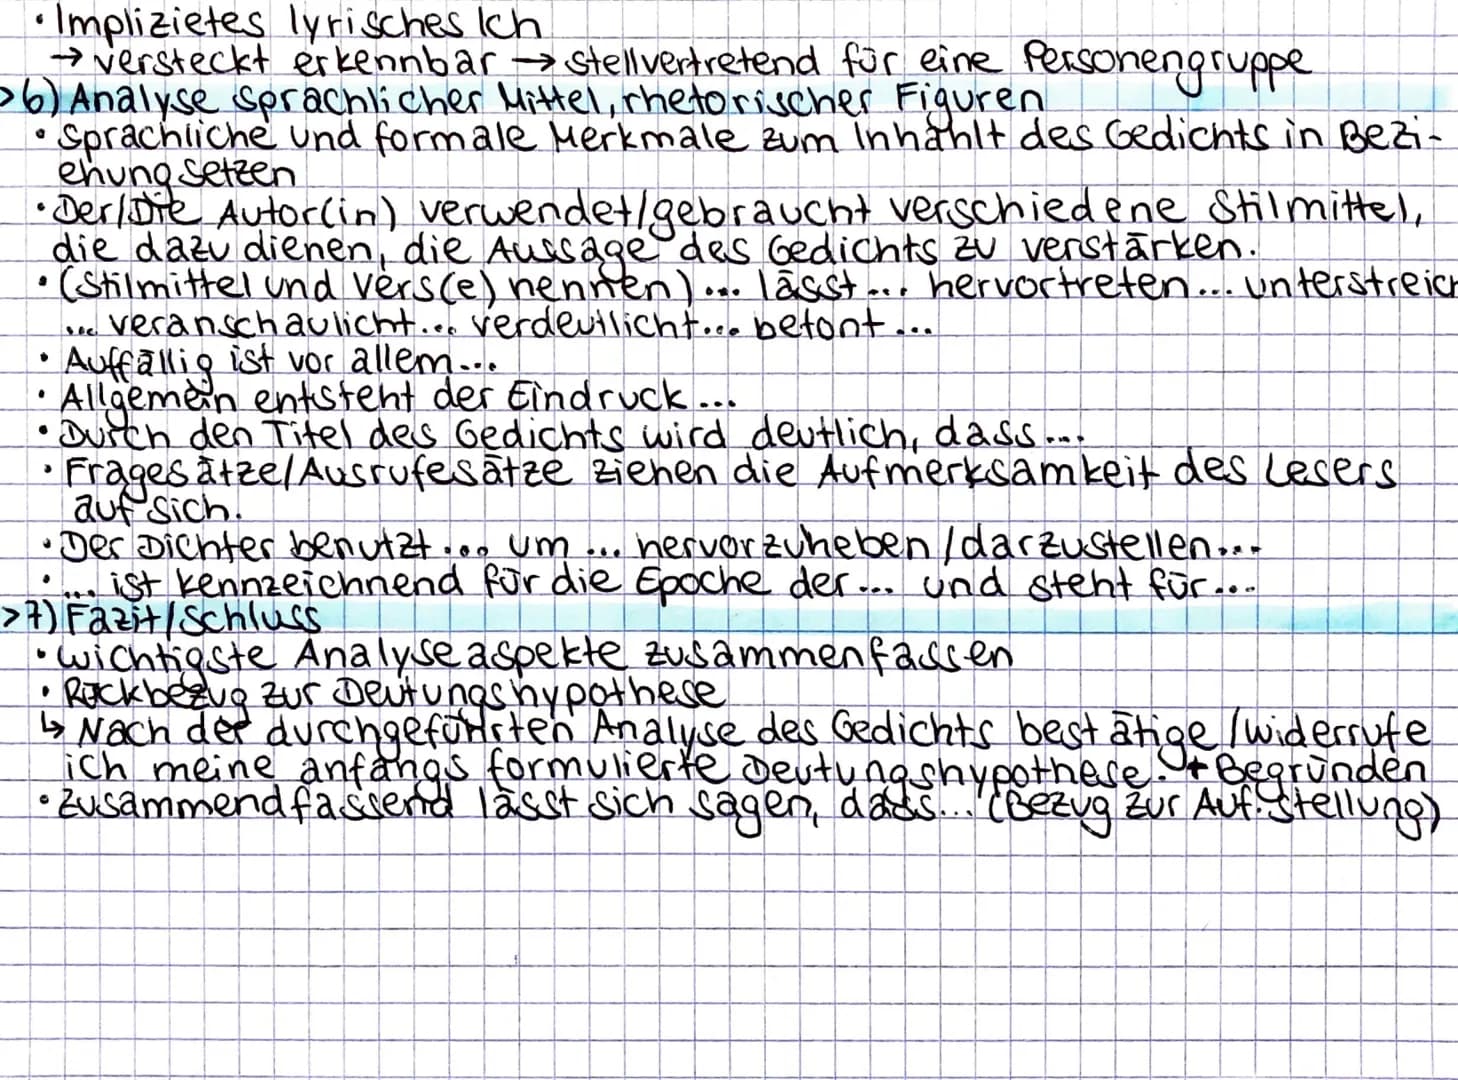 • Implizietes lyrisches Ich
→ versteckt erkennbar → stellvertretend für eine Personengruppe
>6) Analyse sprachlicher Mittel, rhetorischer Figuren
• Sprachliche und formale Merkmale zum Inhahlt des Gedichts in Bezi-
ehung setzen
• Der/Die Autor(in) verwendet/gebraucht verschiedene Stilmittel,
die dazu dienen, die Aussage des Gedichts zu verstärken.
• (Stilmittel und Vers(e) nennen) ... lässt ... hervortreten ... unterstreich
... veranschaulicht ... verdeutlicht ... betont ...
• Auffällig ist vor allem ...
• Allgemein entsteht der Eindruck ...
• Durch den Titel des Gedichts wird deutlich, dass ...
• Fragesätze/Ausrufesätze ziehen die Aufmerksamkeit des Lesers
auf sich.
• Der Dichter benutzt ... um ... hervorzuheben/darzustellen ...
• ... ist kennzeichnend für die Epoche der ... und steht für ...
>7) Fazit/Schluss
• wichtigste Analyseaspekte zusammenfassen
• Rückbezug zur Deutungshypothese
↳ Nach der durchgeführten Analyse des Gedichts bestätige/widerrufe
ich meine anfangs formulierte Deutungshypothese. + Begründen
• Zusammendfassend lässt sich sagen, dass ... (Bezug zur Auf.stellung)